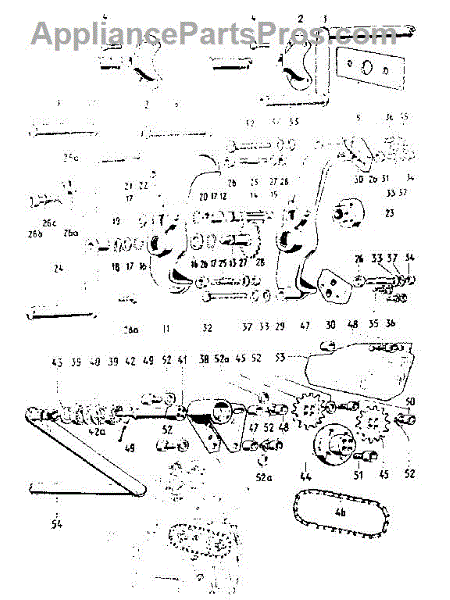 AppliancePartsPros.com
4 4 2 3
2
32 33 36 35
25a
21 22 28 25 27 28 30 26 31 34
17 20 17 12 14 15 33 37
19 23
26c
26b 26a
24 18 17 16 16 26 17 25 13 27 28 26 33 37 34
26a 11 32 37 33 29 47 30 48 35 36
43 39 40 39 42 49 52 41 38 52a 45 52 53
50
42a 52 47 52 48
49
52a 44 51 45 52
54 46